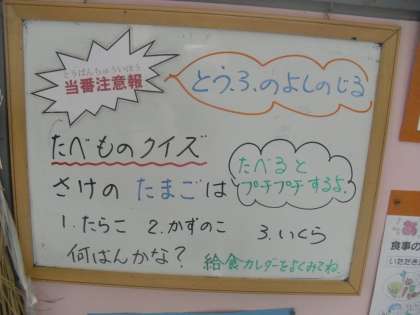 とうばんちゅういほう
当番注意報
とつ.ろ.のよしのじる
たべものクイズ
たべると
プチプチするよ。
さけのたまごは
1.たらこ 2.かずのこ 3.いくら
何ばんかな?
給食カレンダーをよくみてね。
食事の
いただき